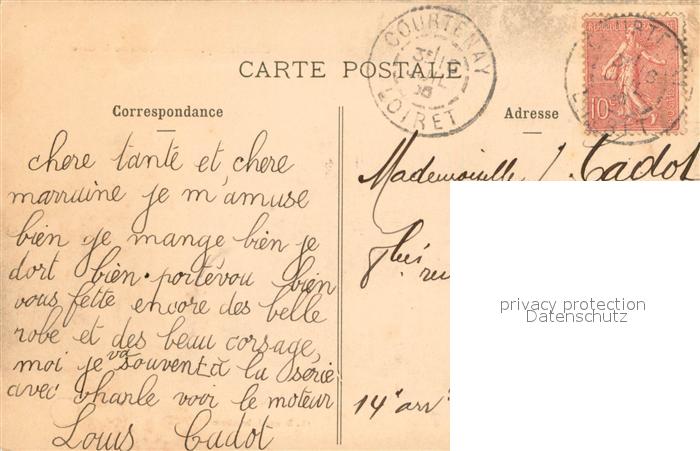 CARTE POSTALE
Correspondance
chere tante et chere
marraine je m'amuse
bien je mange bien je
dort bien. portévou bien
vous fette encore des belle
robe et des beau corsage,
moi je va souvent à la serie
avec charle voir le moteur
Louis Cadot
Adresse
Mademoiselle J Cadot
rue
14e arr
COURTENAY
LOIRET
10c
privacy protection
Datenschutz